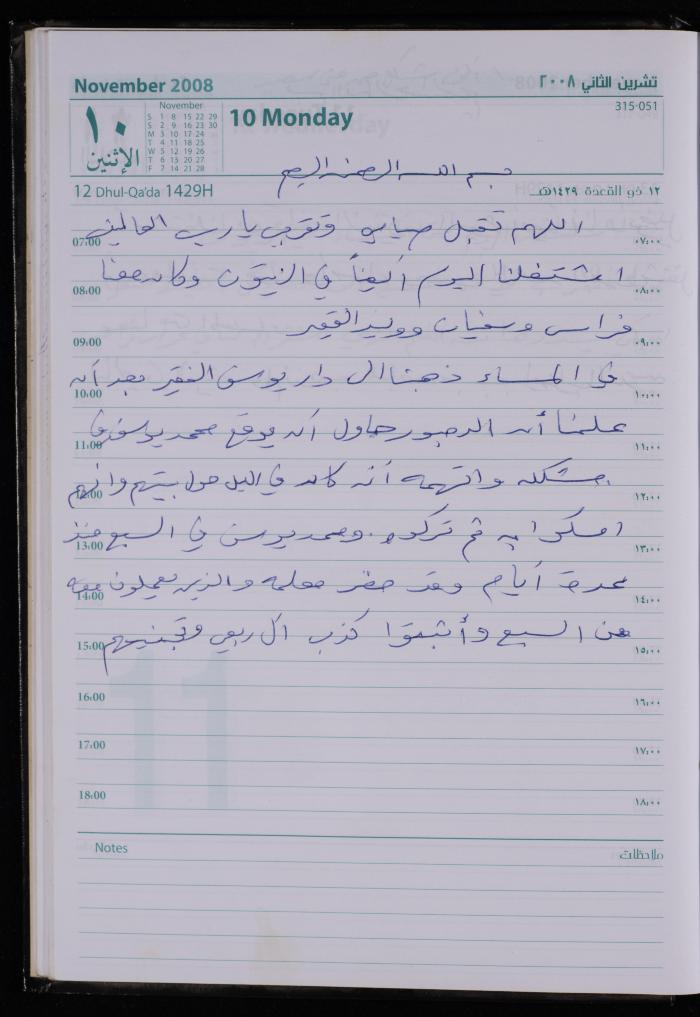 November 2008 تشرين الثاني ٢٠٠٨
١٠ الإثنين
November
S 1 8 15 22 29
S 2 9 16 23 30
M 3 10 17 24
T 4 11 18 25
W 5 12 19 26
T 6 13 20 27
F 7 14 21 28
10 Monday
315-051
بسم الله الرحمن الرحيم
12 Dhul-Qa'da 1429H ١٢ ذو القعدة ١٤٢٩هـ
اللهم تقبل صيامي وتقربي يا رب العالمين
07:00 ٠٧:٠٠
اشتغلنا اليوم أيضاً في الزيتون وكان معنا
08:00 ٠٨:٠٠
فراس وسفيان ووليد الفقير
09:00 ٠٩:٠٠
في المساء ذهبنا الى دار يوسف الفقير بعد أن
10:00 ١٠:٠٠
علمنا أن الدبور حاول أن يوقع محمد يوسف في
11:00 ١١:٠٠
مشكله واتهمه أنه كان في الليل حول بيتهم وانهم
12:00 ١٢:٠٠
امسكوا به ثم تركوه. ومحمد يوسف في السبع منذ
13:00 ١٣:٠٠
عدة أيام وقد حضر معلمه والذين يعملون معه
14:00 ١٤:٠٠
من السبع وأثبتوا كذب ال ربعي وتجنيهم
15:00 ١٥:٠٠
16:00 ١٦:٠٠
17:00 ١٧:٠٠
18:00 ١٨:٠٠
Notes ملاحظات